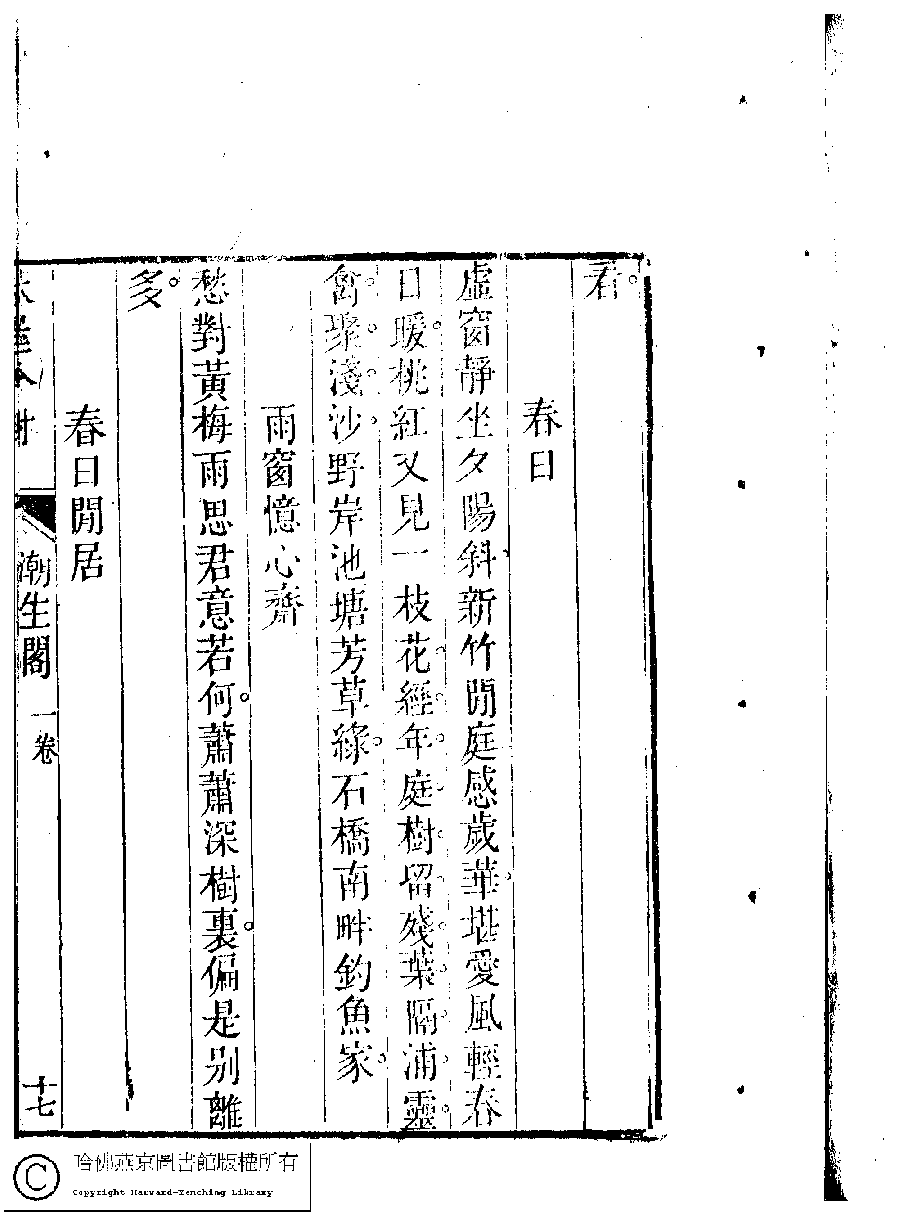 君。
春日
虛窗靜坐夕陽斜新竹閒庭感歲華。堪愛風輕春
日暖。桃紅又見一枝花。經。年。庭樹。留。殘。葉。隔。浦。靈。
禽。聚。淺。沙。野岸池塘芳草綠。石橋南畔釣魚家。
雨窗憶心齋
愁對黃梅雨思君意若何。蕭蕭深樹裏。偏是別離
多。
春日閒居
潮生閣
一卷
十七
哈佛燕京圖書館版權所有
Copyright Harvard-Yenching Library